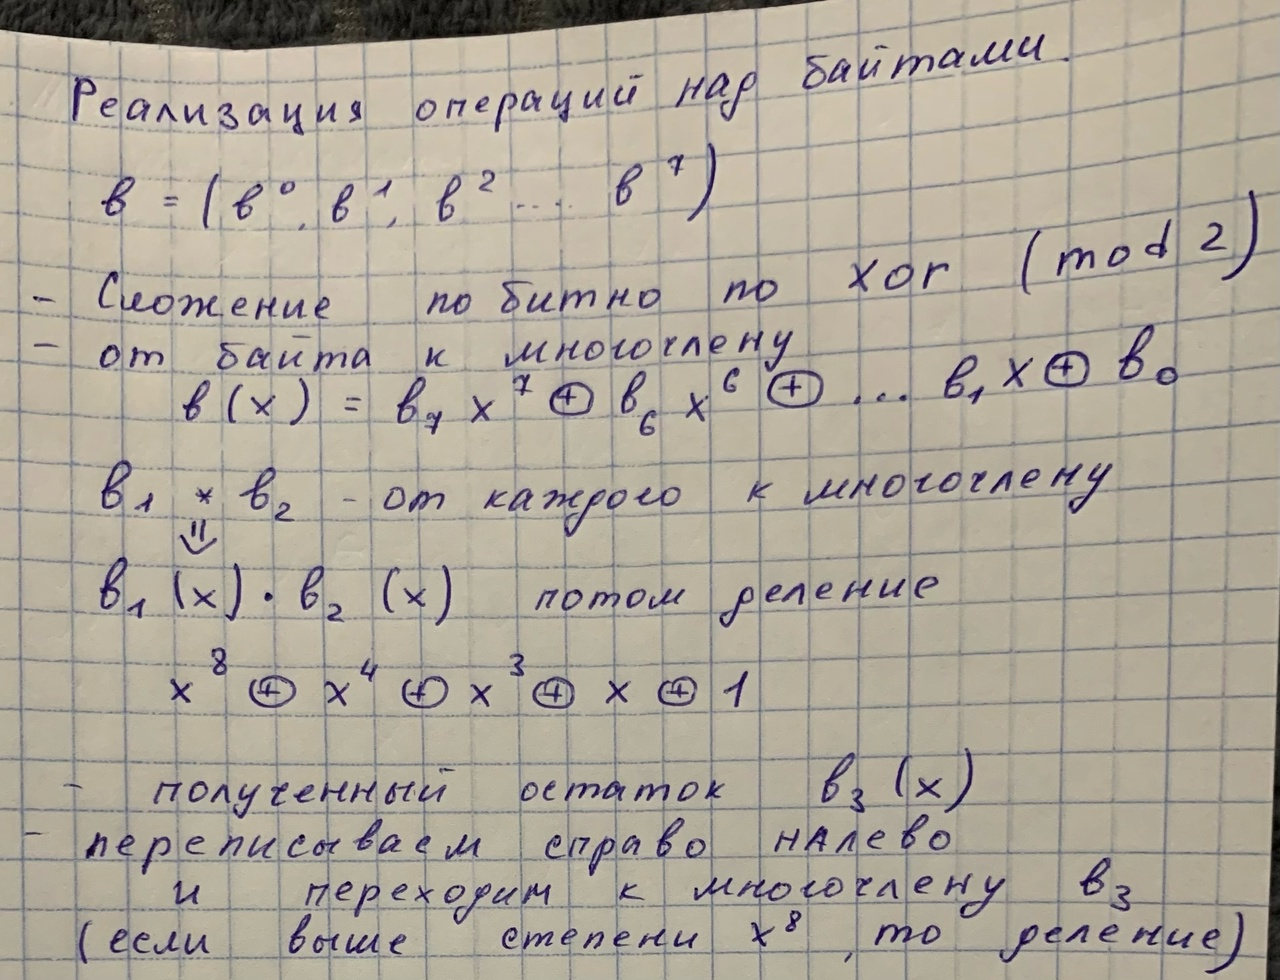 Реализация операций над байтами.
в = (в⁰, в¹, в² ... в⁷)
- Сложение по битно по xor (mod 2)
- от байта к многочлену
в(x) = в₇ x⁷ ⊕ в₆ x⁶ ⊕ ... в₁ x ⊕ в₀
в₁ * в₂ - от каждого к многочлену
⇓
в₁ (x) · в₂ (x) потом деление
x⁸ ⊕ x⁴ ⊕ x³ ⊕ x ⊕ 1
- полученный остаток в₃ (x)
- переписываем справо налево
и переходим к многочлену в₃
(если выше степени x⁸, то деление)